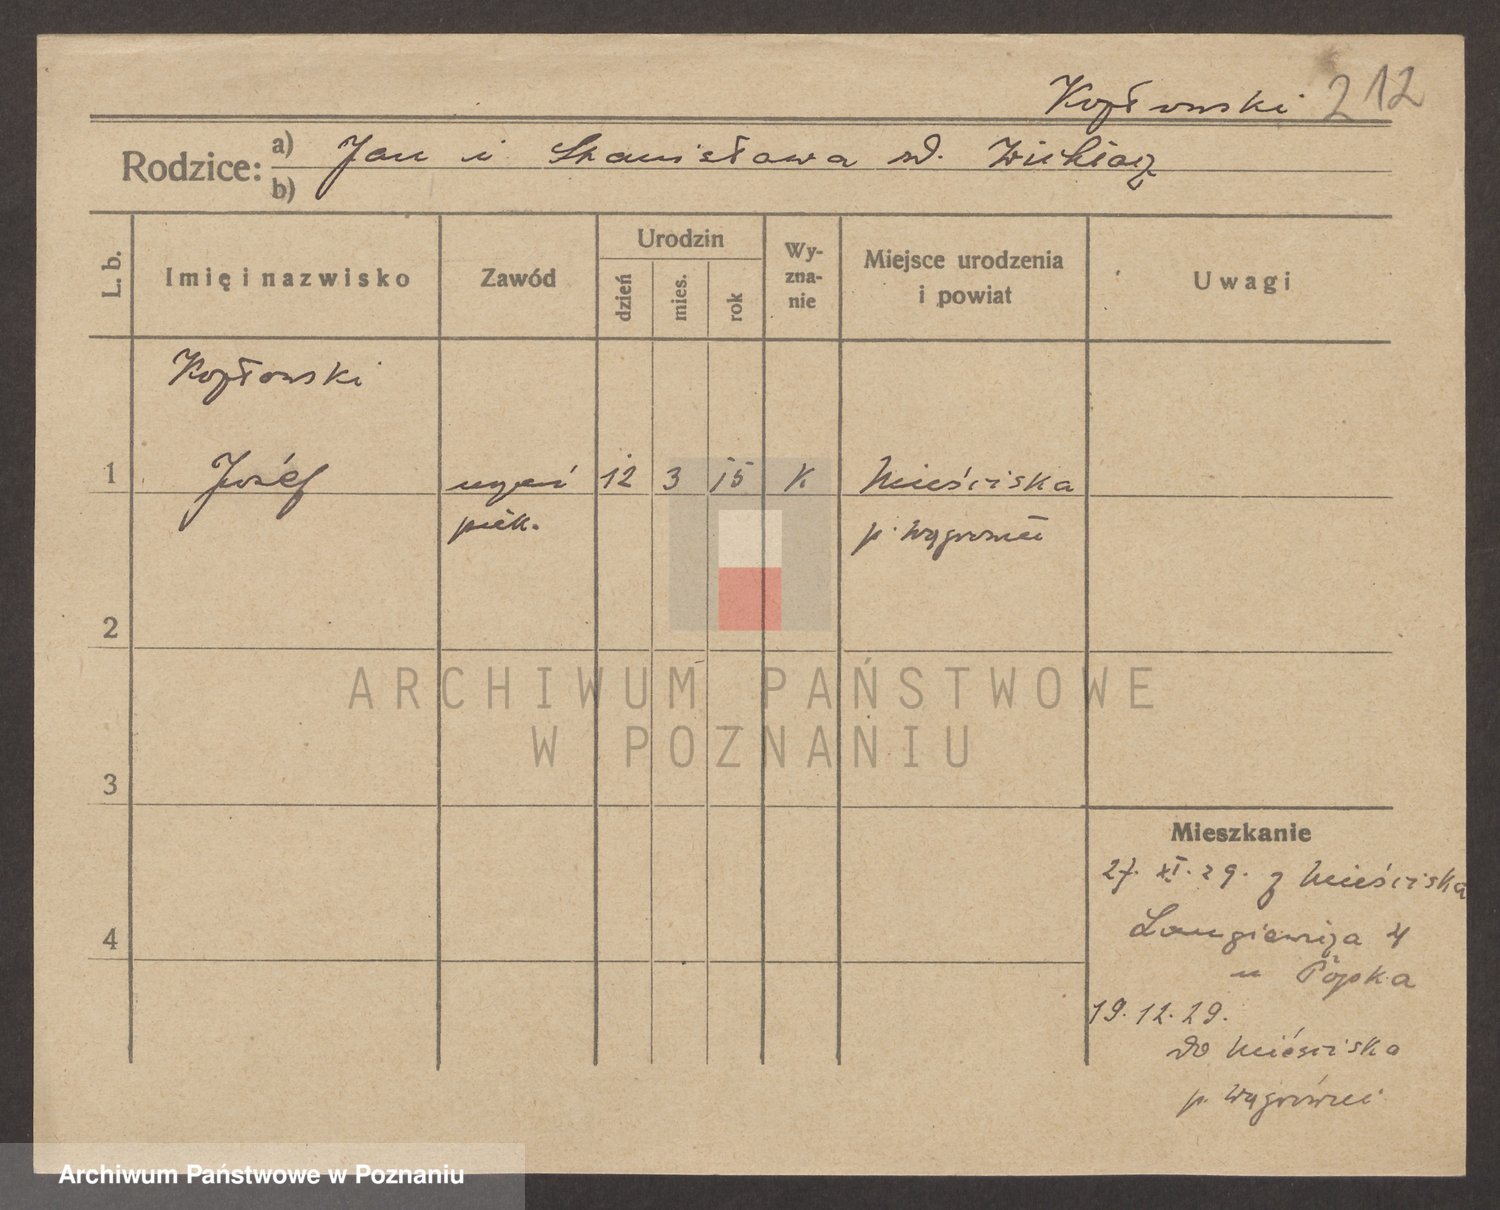 Kozłowski 212
Rodzice: a) Jan i Stanisława
b)
L. b.
Imię i nazwisko
Zawód
Urodzin
dzień
mies.
rok
Wy-
zna-
nie
Miejsce urodzenia
i powiat
Uwagi
Kozłowski
1 Józef uczeń 12 3 15 K Mieściska
piek. p. Wągrowiec
2
3
4
Mieszkanie
27. XI. 29. z Mieściska
Langiewicza 4
u
19. 12. 29.
do Mieściska
p. Wągrówiec
ARCHIWUM PAŃSTWOWE
W POZNANIU
Archiwum Państwowe w Poznaniu